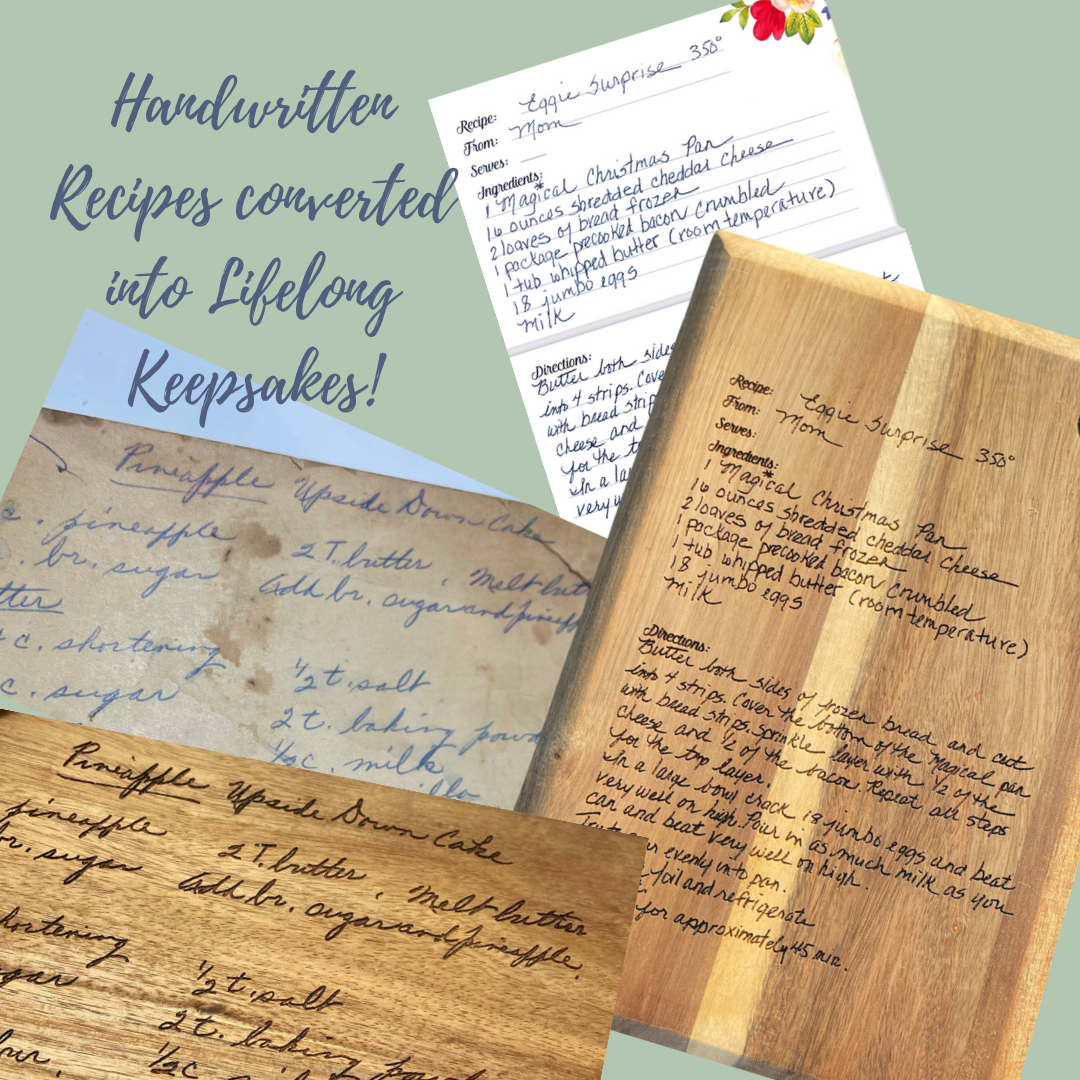 Handwritten
Recipes converted
into Lifelong
Keepsakes!
Recipe: Eggie Surprise 350°
From: Mom
Serves:
Ingredients:
1 Magical Christmas Pan
16 ounces shredded cheddar cheese
2 loaves of bread frozen
1 package precooked bacon crumbled
1 tub whipped butter (room temperature)
18 jumbo eggs
Milk
Directions:
Butter both sides
into 4 strips. Cove
with bread strip
cheese and
for the t
In a la
very w
Recipe: Eggie Surprise 350°
From: Mom
Serves:
Ingredients:
1 Magical Christmas Pan
16 ounces shredded cheddar cheese
2 loaves of bread frozen
1 package precooked bacon crumbled
1 tub whipped butter (room temperature)
18 jumbo eggs
Milk
Directions:
Butter both sides of frozen bread, and cut
into 4 strips. Cover the bottom of the Magical pan
with bread strips. Sprinkle layer with 1/2 of the
cheese and 1/2 of the bacon. Repeat all steps
for the top layer.
In a large bowl crack 18 jumbo eggs and beat
very well on high. Pour in as much milk as you
can and beat very well on high.
evenly into pan.
foil and refrigerate
for approximately 45 min.
Pineapple Upside Down Cake
c. pineapple 2 T. butter, Melt but
. br. sugar Add br. sugar and pineapp
tter
c. shortening 1/2 t. salt
c. sugar 2 t. baking powd
1/2 c. milk
Pineapple Upside Down Cake
pineapple 2 T. butter, Melt butter
br. sugar Add br. sugar and pineapple.
hortening 1/2 t. salt
gar 2 t. baking powd
our. 1/2 c